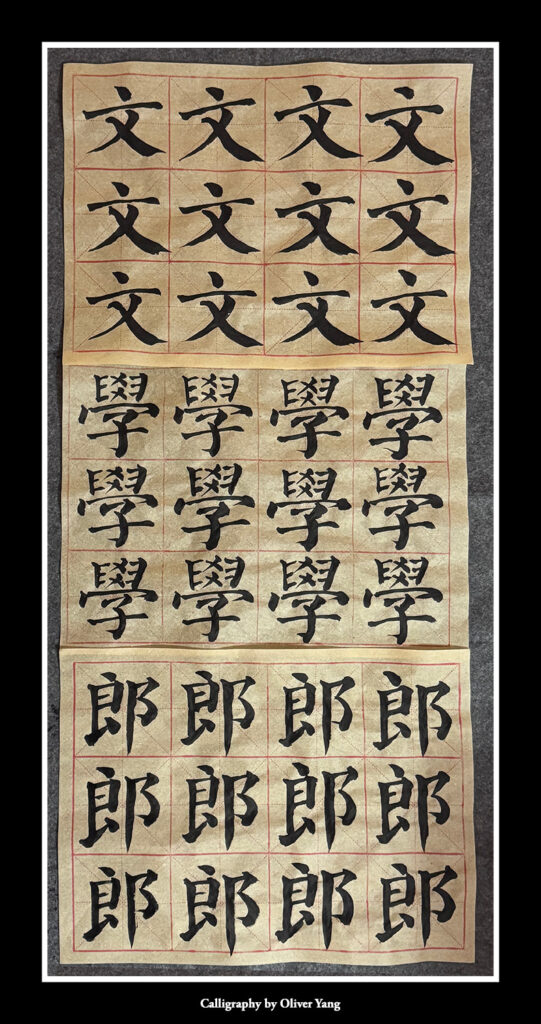 文文文文
文文文文
文文文文
學學學學
學學學學
學學學學
郎郎郎郎
郎郎郎郎
郎郎郎郎
Calligraphy by Oliver Yang